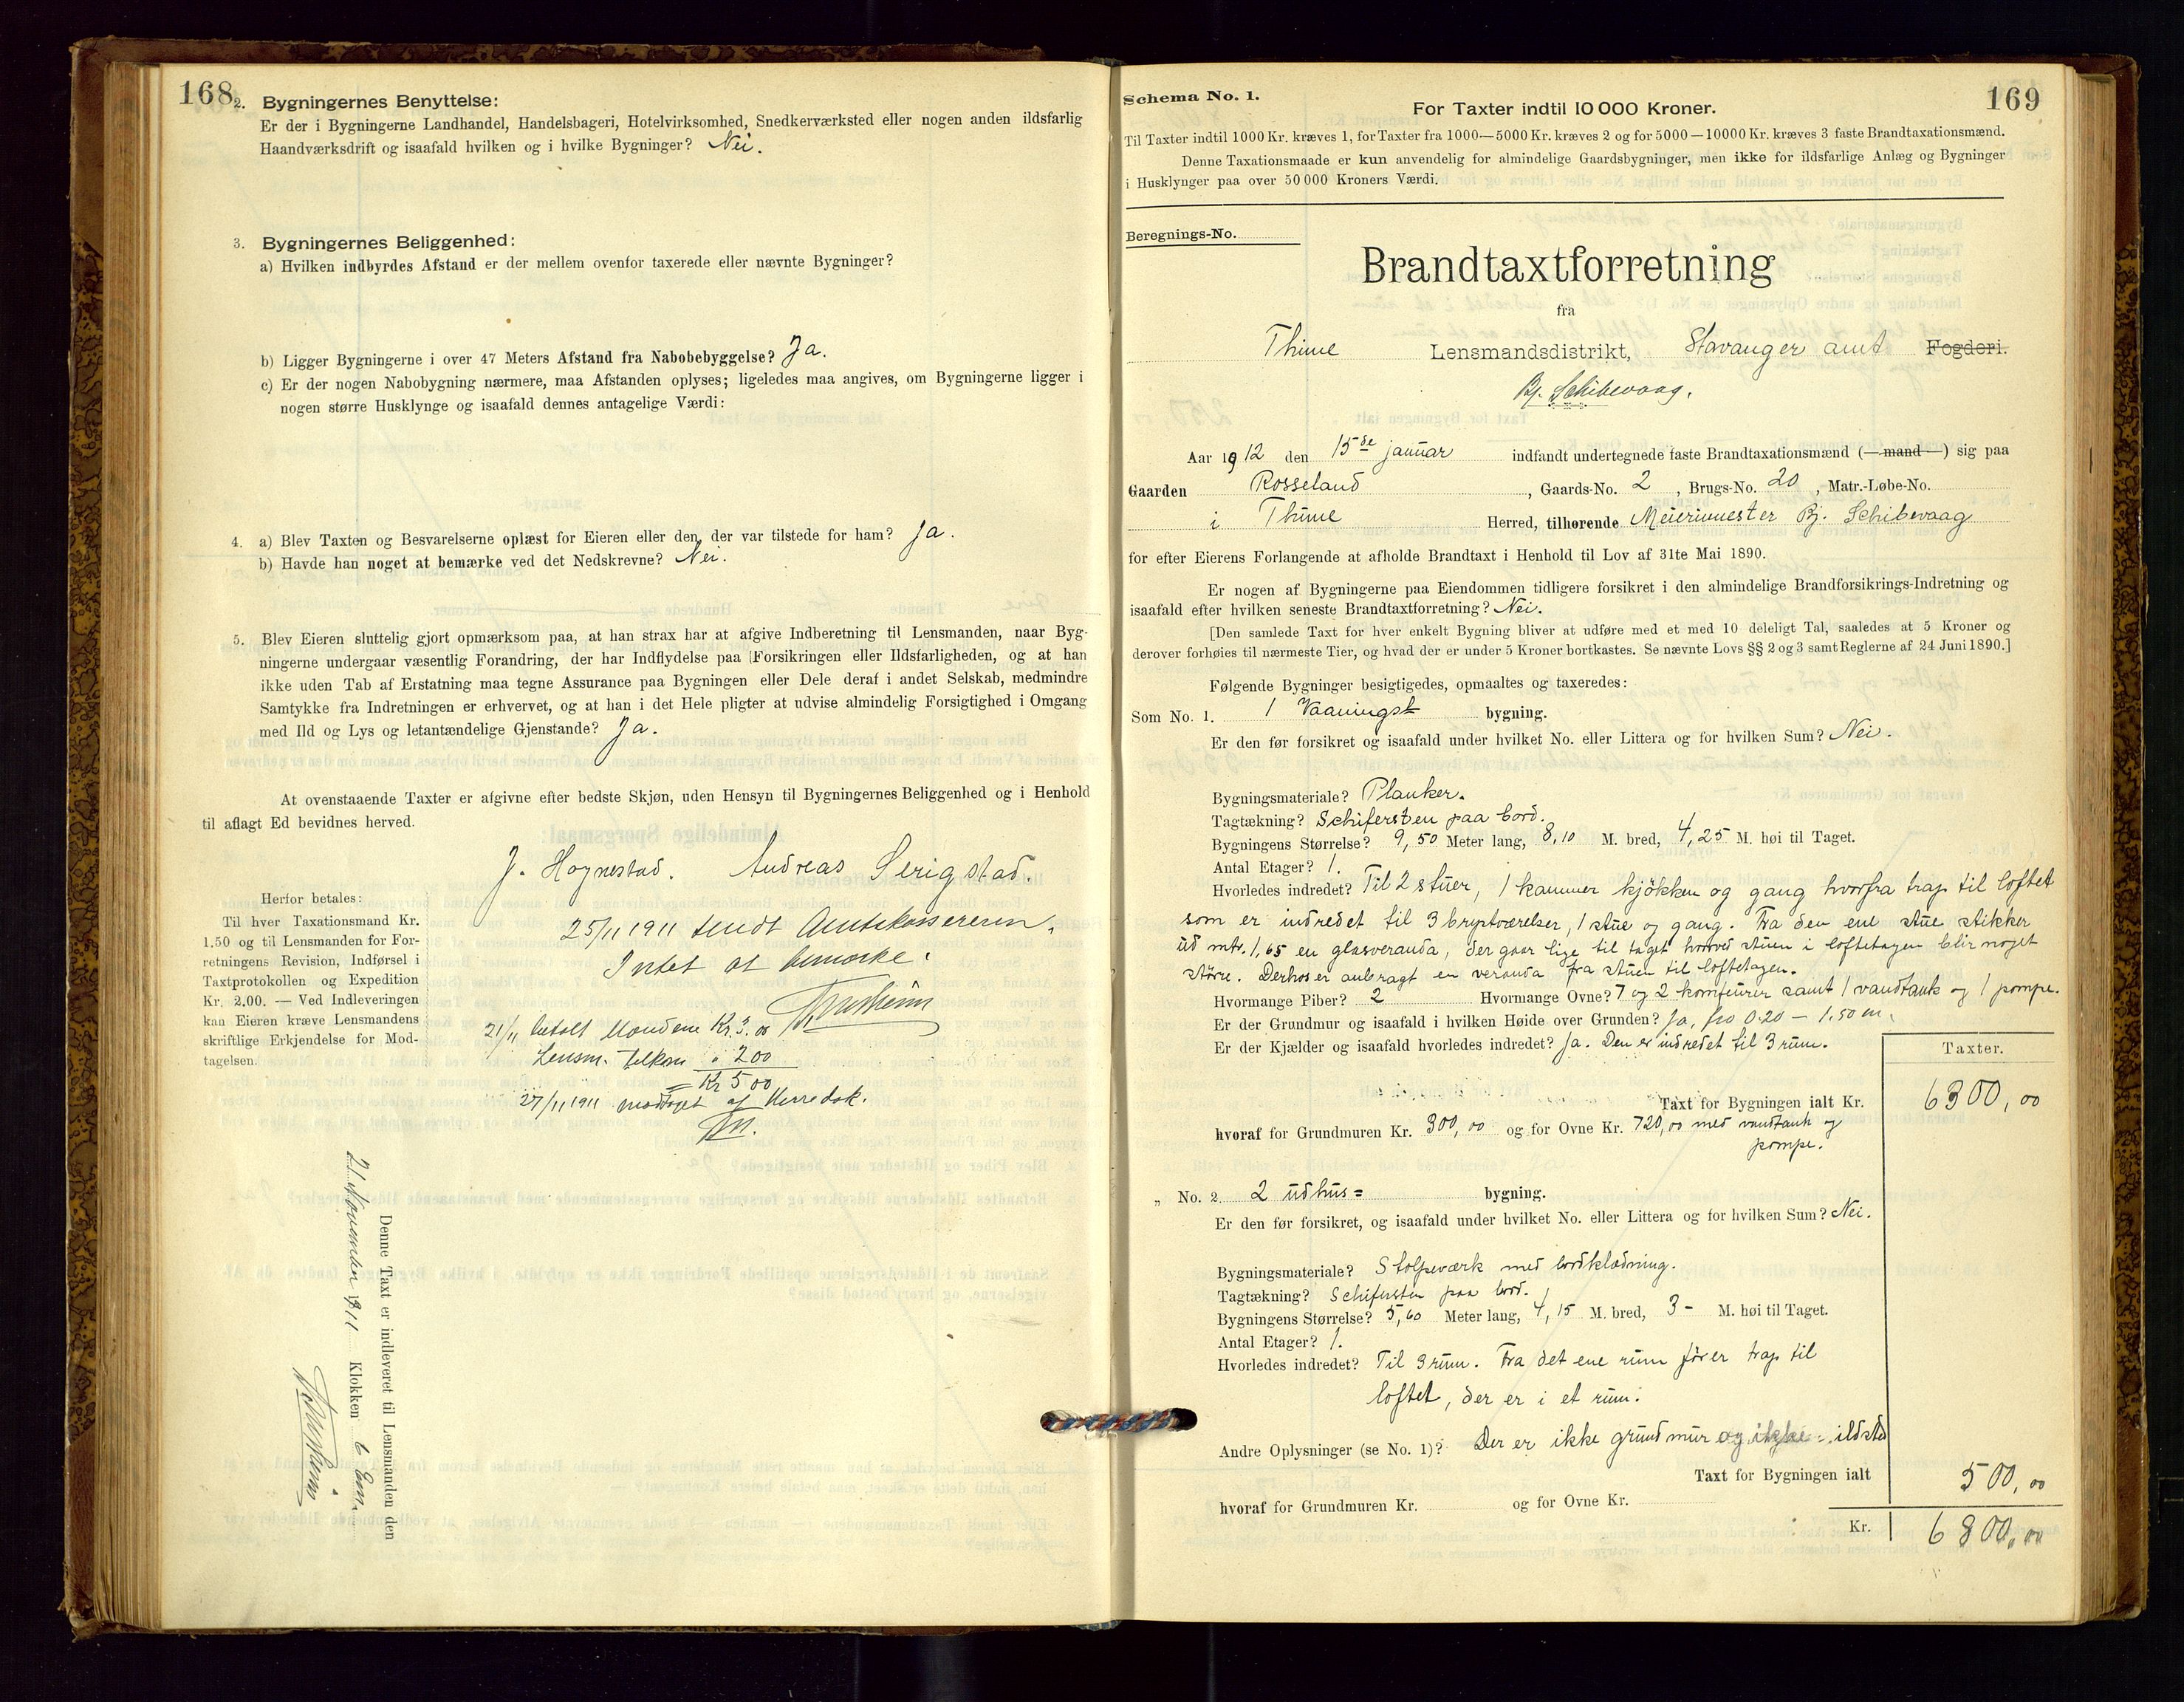 168
2. Bygningernes Benyttelse:
Er der i Bygningerne Landhandel, Handelsbageri, Hotelvirksomhed, Snedkerværksted eller nogen anden ildsfarlig
Haandværksdrift og isaafald hvilken og i hvilke Bygninger? Nei.
3. Bygningernes Beliggenhed:
a) Hvilken indbyrdes Afstand er der mellem ovenfor taxerede eller nævnte Bygninger?
b) Ligger Bygningerne i over 47 Meters Afstand fra Nabobebyggelse? Ja.
c) Er der nogen Nabobygning nærmere, maa Afstanden oplyses; ligeledes maa angives, om Bygningerne ligger i
nogen større Husklynge og isaafald dennes antagelige Værdi:
4. a) Blev Taxten og Besvarelserne oplæst for Eieren eller den, der var tilstede for ham? Ja.
b) Havde han noget at bemærke ved det Nedskrevne? Nei.
5. Blev Eieren sluttelig gjort opmærksom paa, at han strax har at afgive Indberetning til Lensmanden, naar Byg-
ningerne undergaar væsentlig Forandring, der har Indflydelse paa Forsikringen eller Ildsfarligheden, og at han
ikke uden Tab af Erstatning maa tegne Assurance paa Bygningen eller Dele deraf i andet Selskab, medmindre
Samtykke fra Indretningen er erhvervet, og at han i det Hele pligter at udvise almindelig Forsigtighed i Omgang
med Ild og Lys og letantændelige Gjenstande? Ja.
At ovenstaaende Taxter er afgivne efter bedste Skjøn, uden Hensyn til Bygningernes Beliggenhed og i Henhold
til aflagt Ed bevidnes herved.
J. Høgnestad. Andreas Serigstad.
Herfor betales:
Til hver Taxationsmand Kr.
1.50 og til Lensmanden for For-
retningens Revision, Indførsel i
Taxtprotokollen og Expedition
Kr. 2.00. — Ved Indleveringen
kan Eieren kræve Lensmandens
skriftlige Erkjendelse for Mod-
tagelsen.
25/11 1911 sendt Amtskassereren.
Intet at bemærke.
21/11 betalt Mændene Kr. 3.00
Lensm. tilkom " 2 00
= Kr 5 00
27/11 1911 modtaget af Herredsk.
Denne Taxt er indleveret til Lensmanden den
21 November 1911 Klokken 6 Em.
169
Schema No. 1.
For Taxter indtil 10 000 Kroner.
Til Taxter indtil 1000 Kr. kræves 1, for Taxter fra 1000—5000 Kr. kræves 2 og for 5000—10000 Kr. kræves 3 faste Brandtaxationsmænd.
Denne Taxationsmaade er kun anvendelig for almindelige Gaardsbygninger, men ikke for ildsfarlige Anlæg og Bygninger
i Husklynger paa over 50 000 Kroners Værdi.
Beregnings-No.
Brandtaxtforretning
fra
Thime Lensmandsdistrikt, Stavanger amt Fogderi.
Bj. Schibevaag.
Aar 1912 den 15de januar indfandt undertegnede faste Brandtaxationsmænd (—mand—) sig paa
Gaarden Rosseland, Gaards-No. 2, Brugs-No. 20, Matr.-Løbe-No.
i Thime Herred, tilhørende Meierimester Bj. Schibevaag
for efter Eierens Forlangende at afholde Brandtaxt i Henhold til Lov af 31te Mai 1890.
Er nogen af Bygningerne paa Eiendommen tidligere forsikret i den almindelige Brandforsikrings-Indretning og
isaafald efter hvilken seneste Brandtaxtforretning? Nei.
[Den samlede Taxt for hver enkelt Bygning bliver at udføre med et med 10 deleligt Tal, saaledes at 5 Kroner og
derover forhøies til nærmeste Tier, og hvad der er under 5 Kroner bortkastes. Se nævnte Lovs §§ 2 og 3 samt Reglerne af 24 Juni 1890.]
Følgende Bygninger besigtigedes, opmaaltes og taxeredes:
Som No. 1. 1 Vaanings bygning.
Er den før forsikret og isaafald under hvilket No. eller Littera og for hvilken Sum? Nei.
Bygningsmateriale? Planker.
Tagtækning? Schifersten paa bord.
Bygningens Størrelse? 9,50 Meter lang, 8,10 M. bred, 4,25 M. høi til Taget.
Antal Etager? 1.
Hvorledes indredet? Til 2 stuer, 1 kammer kjøkken og gang hvorfra trap til loftet
som er indredet til 3 bryptværelser, 1 stue og gang. Fra den ene stue stikker
ud mtr. 1,65 en glasveranda, der gaar lige til taget hvorved stuen i loftetagen blir noget
større. Derhos er anbragt en veranda fra stuen til loftetagen.
Hvormange Piber? 2 Hvormange Ovne? 7 og 2 komfeurer samt 1 vandtank og 1 pompe.
Er der Grundmur og isaafald i hvilken Høide over Grunden? Ja, fra 0.20 — 1.50 m.
Er der Kjælder og isaafald hvorledes indredet? Ja. Den er indredet til 3 rum.
Taxter.
Taxt for Bygningen ialt Kr. 6300,00
hvoraf for Grundmuren Kr. 300,00 og for Ovne Kr. 720,00 med vandtank og
pompe.
„ No. 2. 2 udhus= bygning.
Er den før forsikret, og isaafald under hvilket No. eller Littera og for hvilken Sum? Nei.
Bygningsmateriale? Stolpeværk med bordklædning.
Tagtækning? Schifersten paa bord.
Bygningens Størrelse? 5,60 Meter lang, 4,15 M. bred, 3- M. høi til Taget.
Antal Etager? 1.
Hvorledes indredet? Til 3 rum. Fra det ene rum fører trap til
loftet, der er i et rum.
Andre Oplysninger (se No. 1)? Der er ikke grundmur og ikke ildsted
Taxt for Bygningen ialt 500,00
hvoraf for Grundmuren Kr. og for Ovne Kr.
Kr. 6800,00